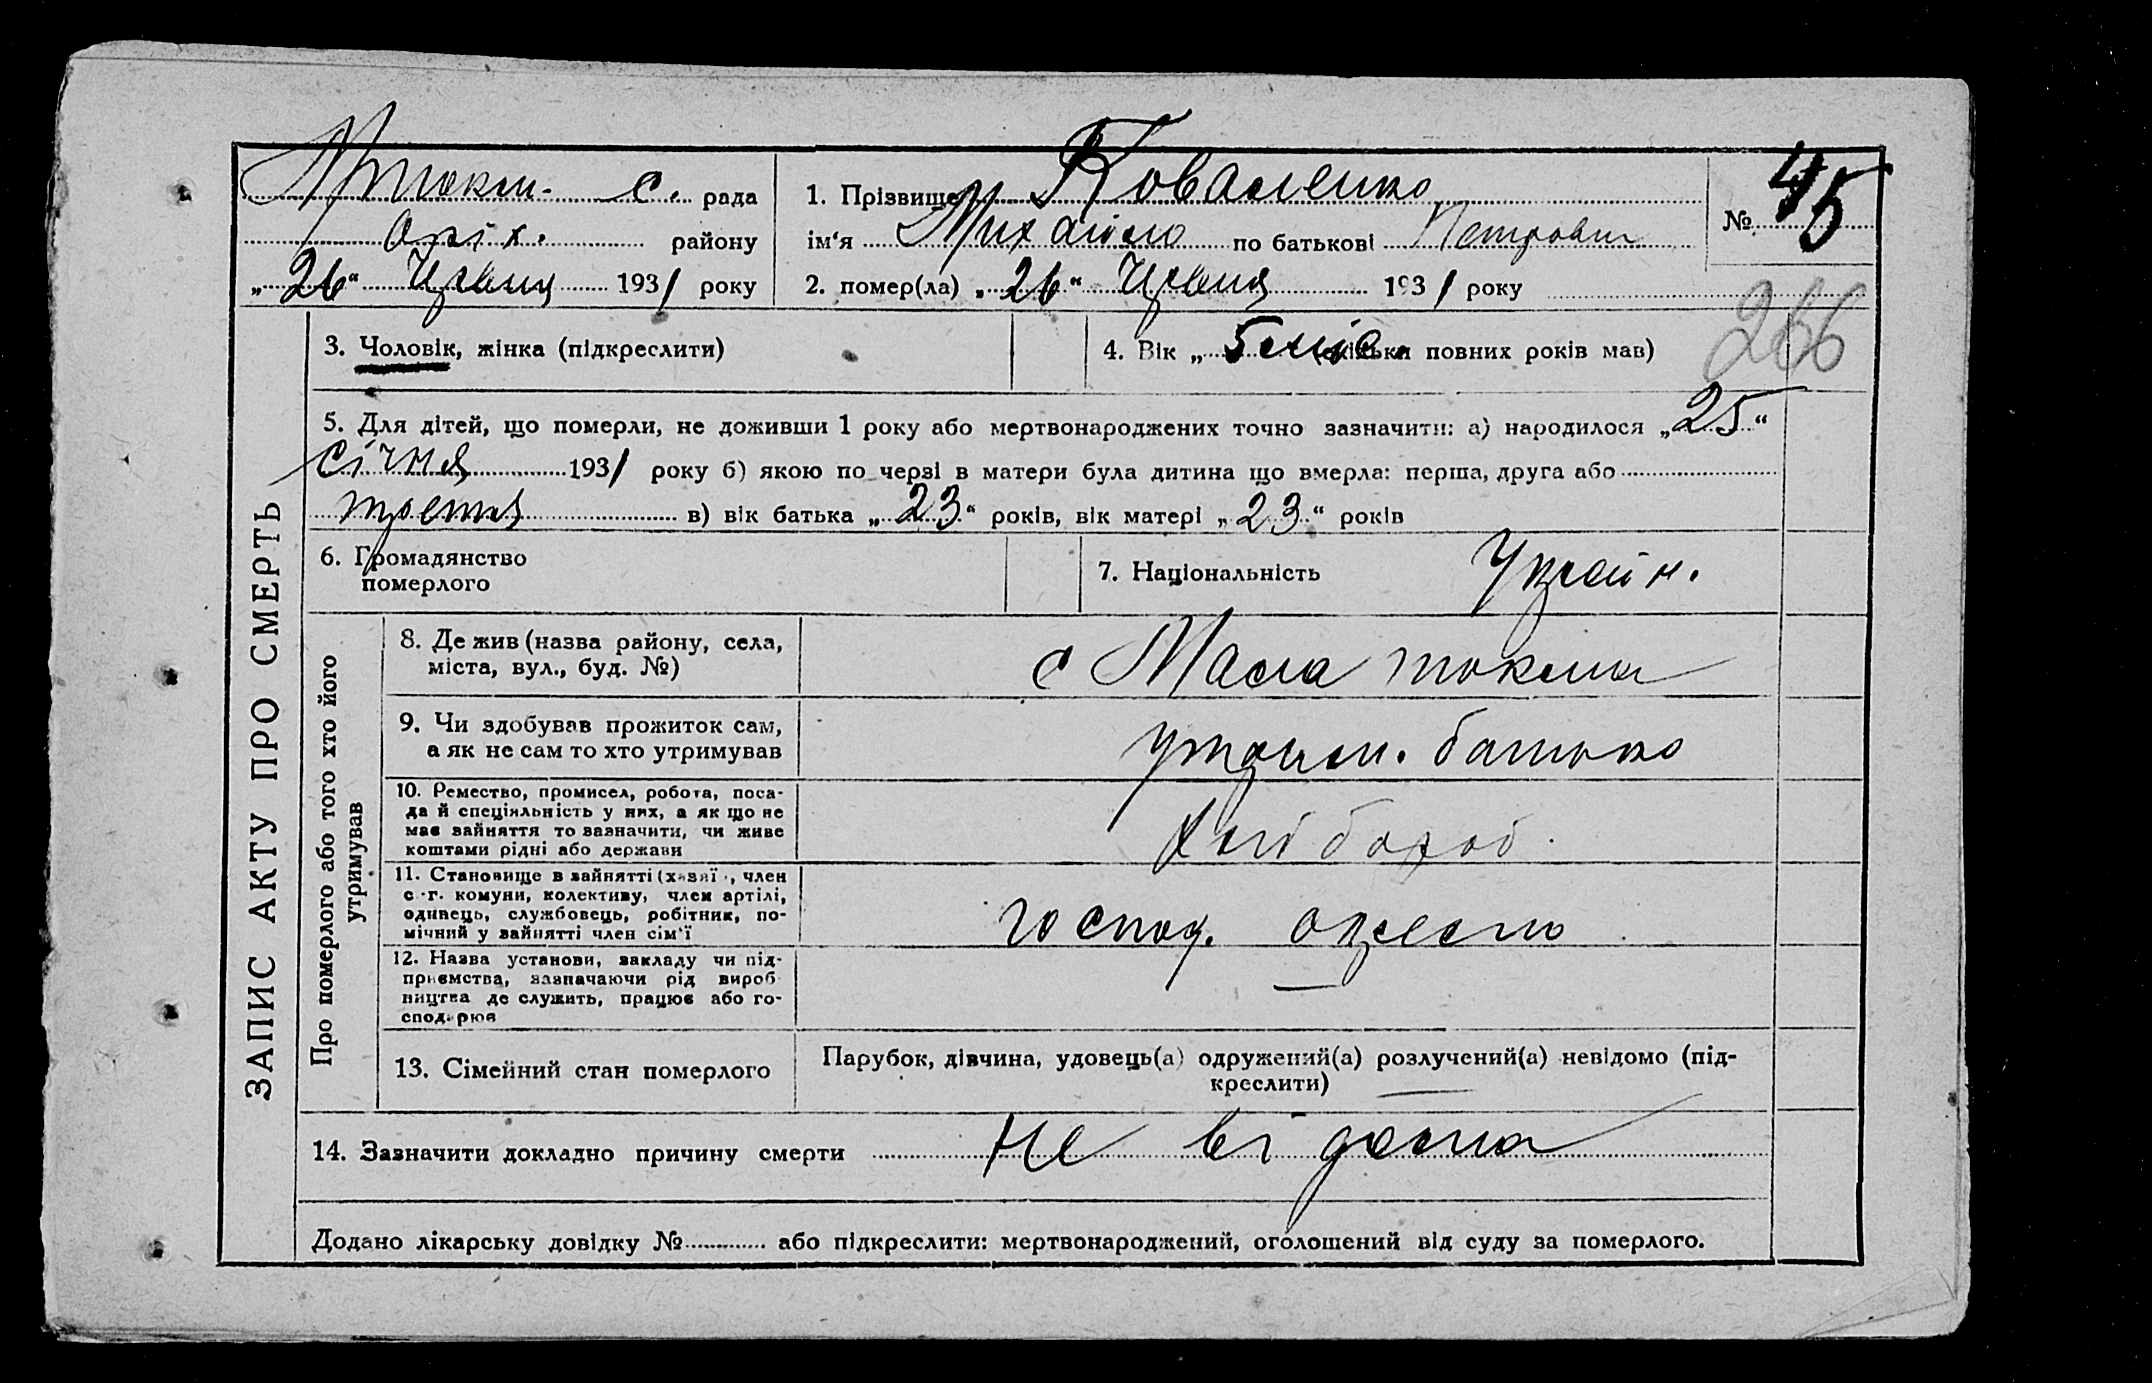 Мтокм. с. рада
Оріх. району
„26“ Червня 1931 року
1. Прізвище Коваленко
ім‘я Михайло по батькові Петрович
2. помер(ла) „26“ Червня 1931 року
№ 45
266
3. Чоловік, жінка (підкреслити)
4. Вік „5 міс. (скільки повних років мав)
5. Для дітей, що померли, не доживши 1 року або мертвонароджених точно зазначити: а) народилося „25“
січня 1931 року б) якою по черзі в матери була дитина що вмерла: перша, друга або
третя в) вік батька „23“ років, вік матері „23“ років
6. Громадянство
померлого
7. Національність Україн.
ЗАПИС АКТУ ПРО СМЕРТЬ
Про померлого або того хто його
утримував
8. Де жив (назва району, села,
міста, вул., буд. №)
с Мала токма
9. Чи здобував прожиток сам,
а як не сам то хто утримував
утрим. батько
10. Ремество, промисел, робота, поса-
да й спеціяльність у них, а як що не
має зайняття то зазначити, чи живе
коштами рідні або держави
Хлібороб.
11. Становище в зайнятті (хазяї, член
с.-г. комуни, колективу, член артілі,
одинець, службовець, робітник, по-
мічний у зайнятті член сім‘ї
господ.
12. Назва установи, закладу чи під-
приємства, зазначаючи рід вироб-
ництва де служить, працює або го-
сподарює
—
13. Сімейний стан померлого
Парубок, дівчина, удовець(а) одружений(а) розлучений(а) невідомо (під-
креслити)
14. Зазначити докладно причину смерти не відома
Додано лікарську довідку № або підкреслити: мертвонароджений, оголошений від суду за померлого.